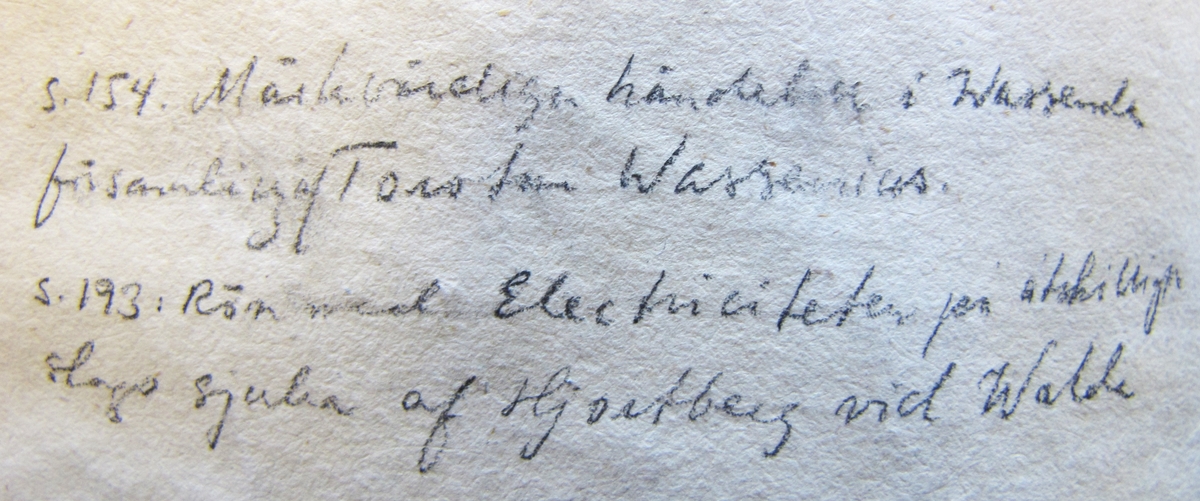 s. 154. Märkvärdiga händelser i Wassenda
församling af Torsten Wassenius.
s. 193: Rön med Electriciteten på åtskillige
slags sjuka af Hjortberg vid Walda